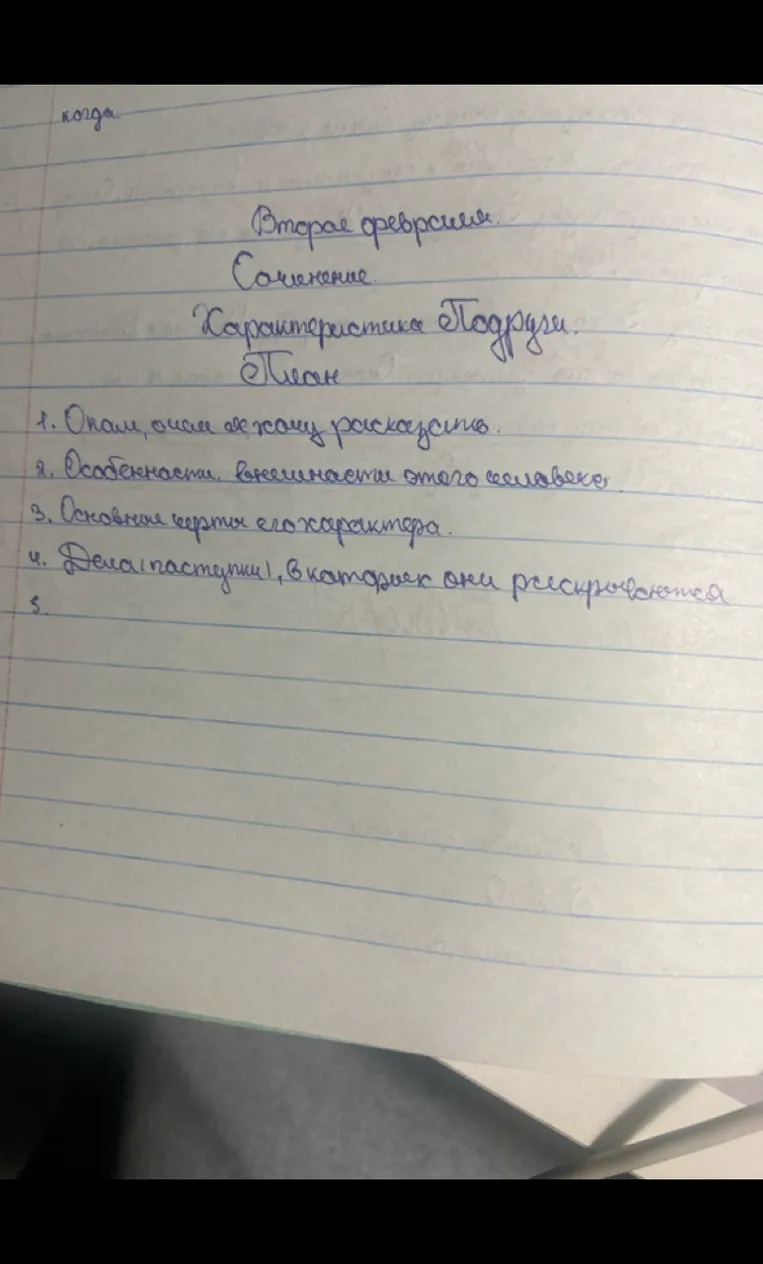 когда
Второе февраля.
Сочинение.
Характеристика Подруги.
План
1. О ком, о чем я хочу расказать.
2. Особенности внешности этого человека.
3. Основные черты его характера.
4. Дела (паступки), в каторых они раскрываются
5.